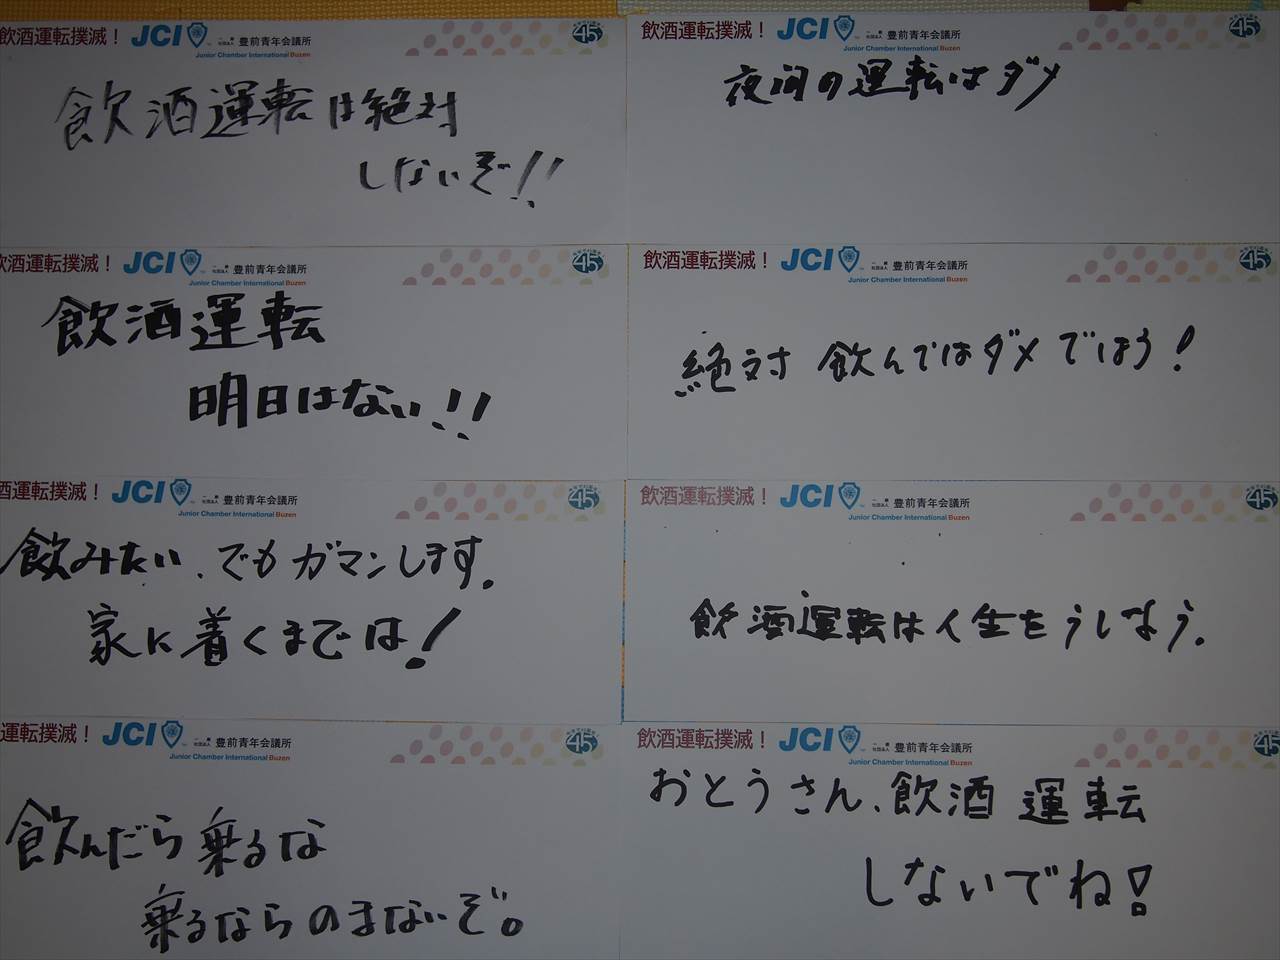 飲酒運転撲滅！ JCI 一般社団法人 豊前青年会議所 45
Junior Chamber International Buzen
飲酒運転は絶対
しないぞ!!
飲酒運転撲滅！ JCI 一般社団法人 豊前青年会議所 45
Junior Chamber International Buzen
夜間の運転はダメ
飲酒運転撲滅！ JCI 一般社団法人 豊前青年会議所 45
Junior Chamber International Buzen
飲酒運転
明日はない!!
飲酒運転撲滅！ JCI 一般社団法人 豊前青年会議所 45
Junior Chamber International Buzen
絶対 飲んではダメでほう!
酒運転撲滅！ JCI 一般社団法人 豊前青年会議所 45
Junior Chamber International Buzen
飲みたい、でもガマンします。
家に着くまでは!
飲酒運転撲滅！ JCI 一般社団法人 豊前青年会議所 45
Junior Chamber International Buzen
飲酒運転は人生をうしなう。
運転撲滅！ JCI 一般社団法人 豊前青年会議所 45
Junior Chamber International Buzen
飲んだら乗るな
乗るならのまないぞ。
飲酒運転撲滅！ JCI 一般社団法人 豊前青年会議所 45
Junior Chamber International Buzen
おとうさん、飲酒運転
しないでね!